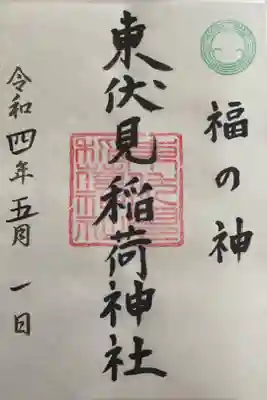 福の神
東伏見稲荷神社
令和四年五月一日